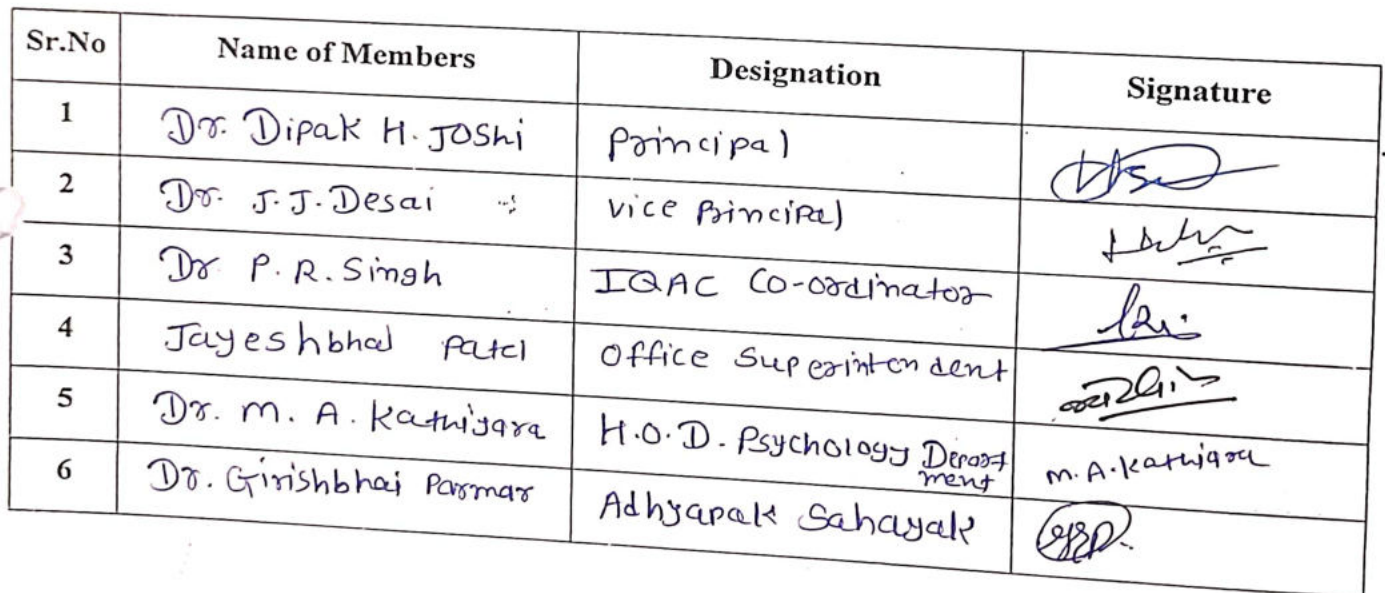 Sr.No Name of Members Designation Signature
1 Dr. Dipak H. Joshi Principal
2 Dr. J. J. Desai Vice Principal
3 Dr P. R. Singh IQAC Co-ordinator
4 Jayeshbhai Patel Office Superintendent
5 Dr. M. A. Kathiyara H.O.D. Psychology Department M. A. Kathiyara
6 Dr. Girishbhai Parmar Adhyapak Sahayak